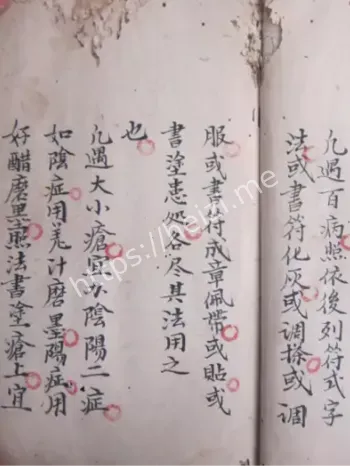 凢遇百病照依後列符式字
法或書符化灰或调搽或调
服或書符成章佩帶或貼或
書塗患处各尽其法用之
也
凢遇大小瘡宜分陰陽二症
如陰症用羌汁磨墨陽症用
好醋磨墨照法書塗瘡上宜
https://heizi.me